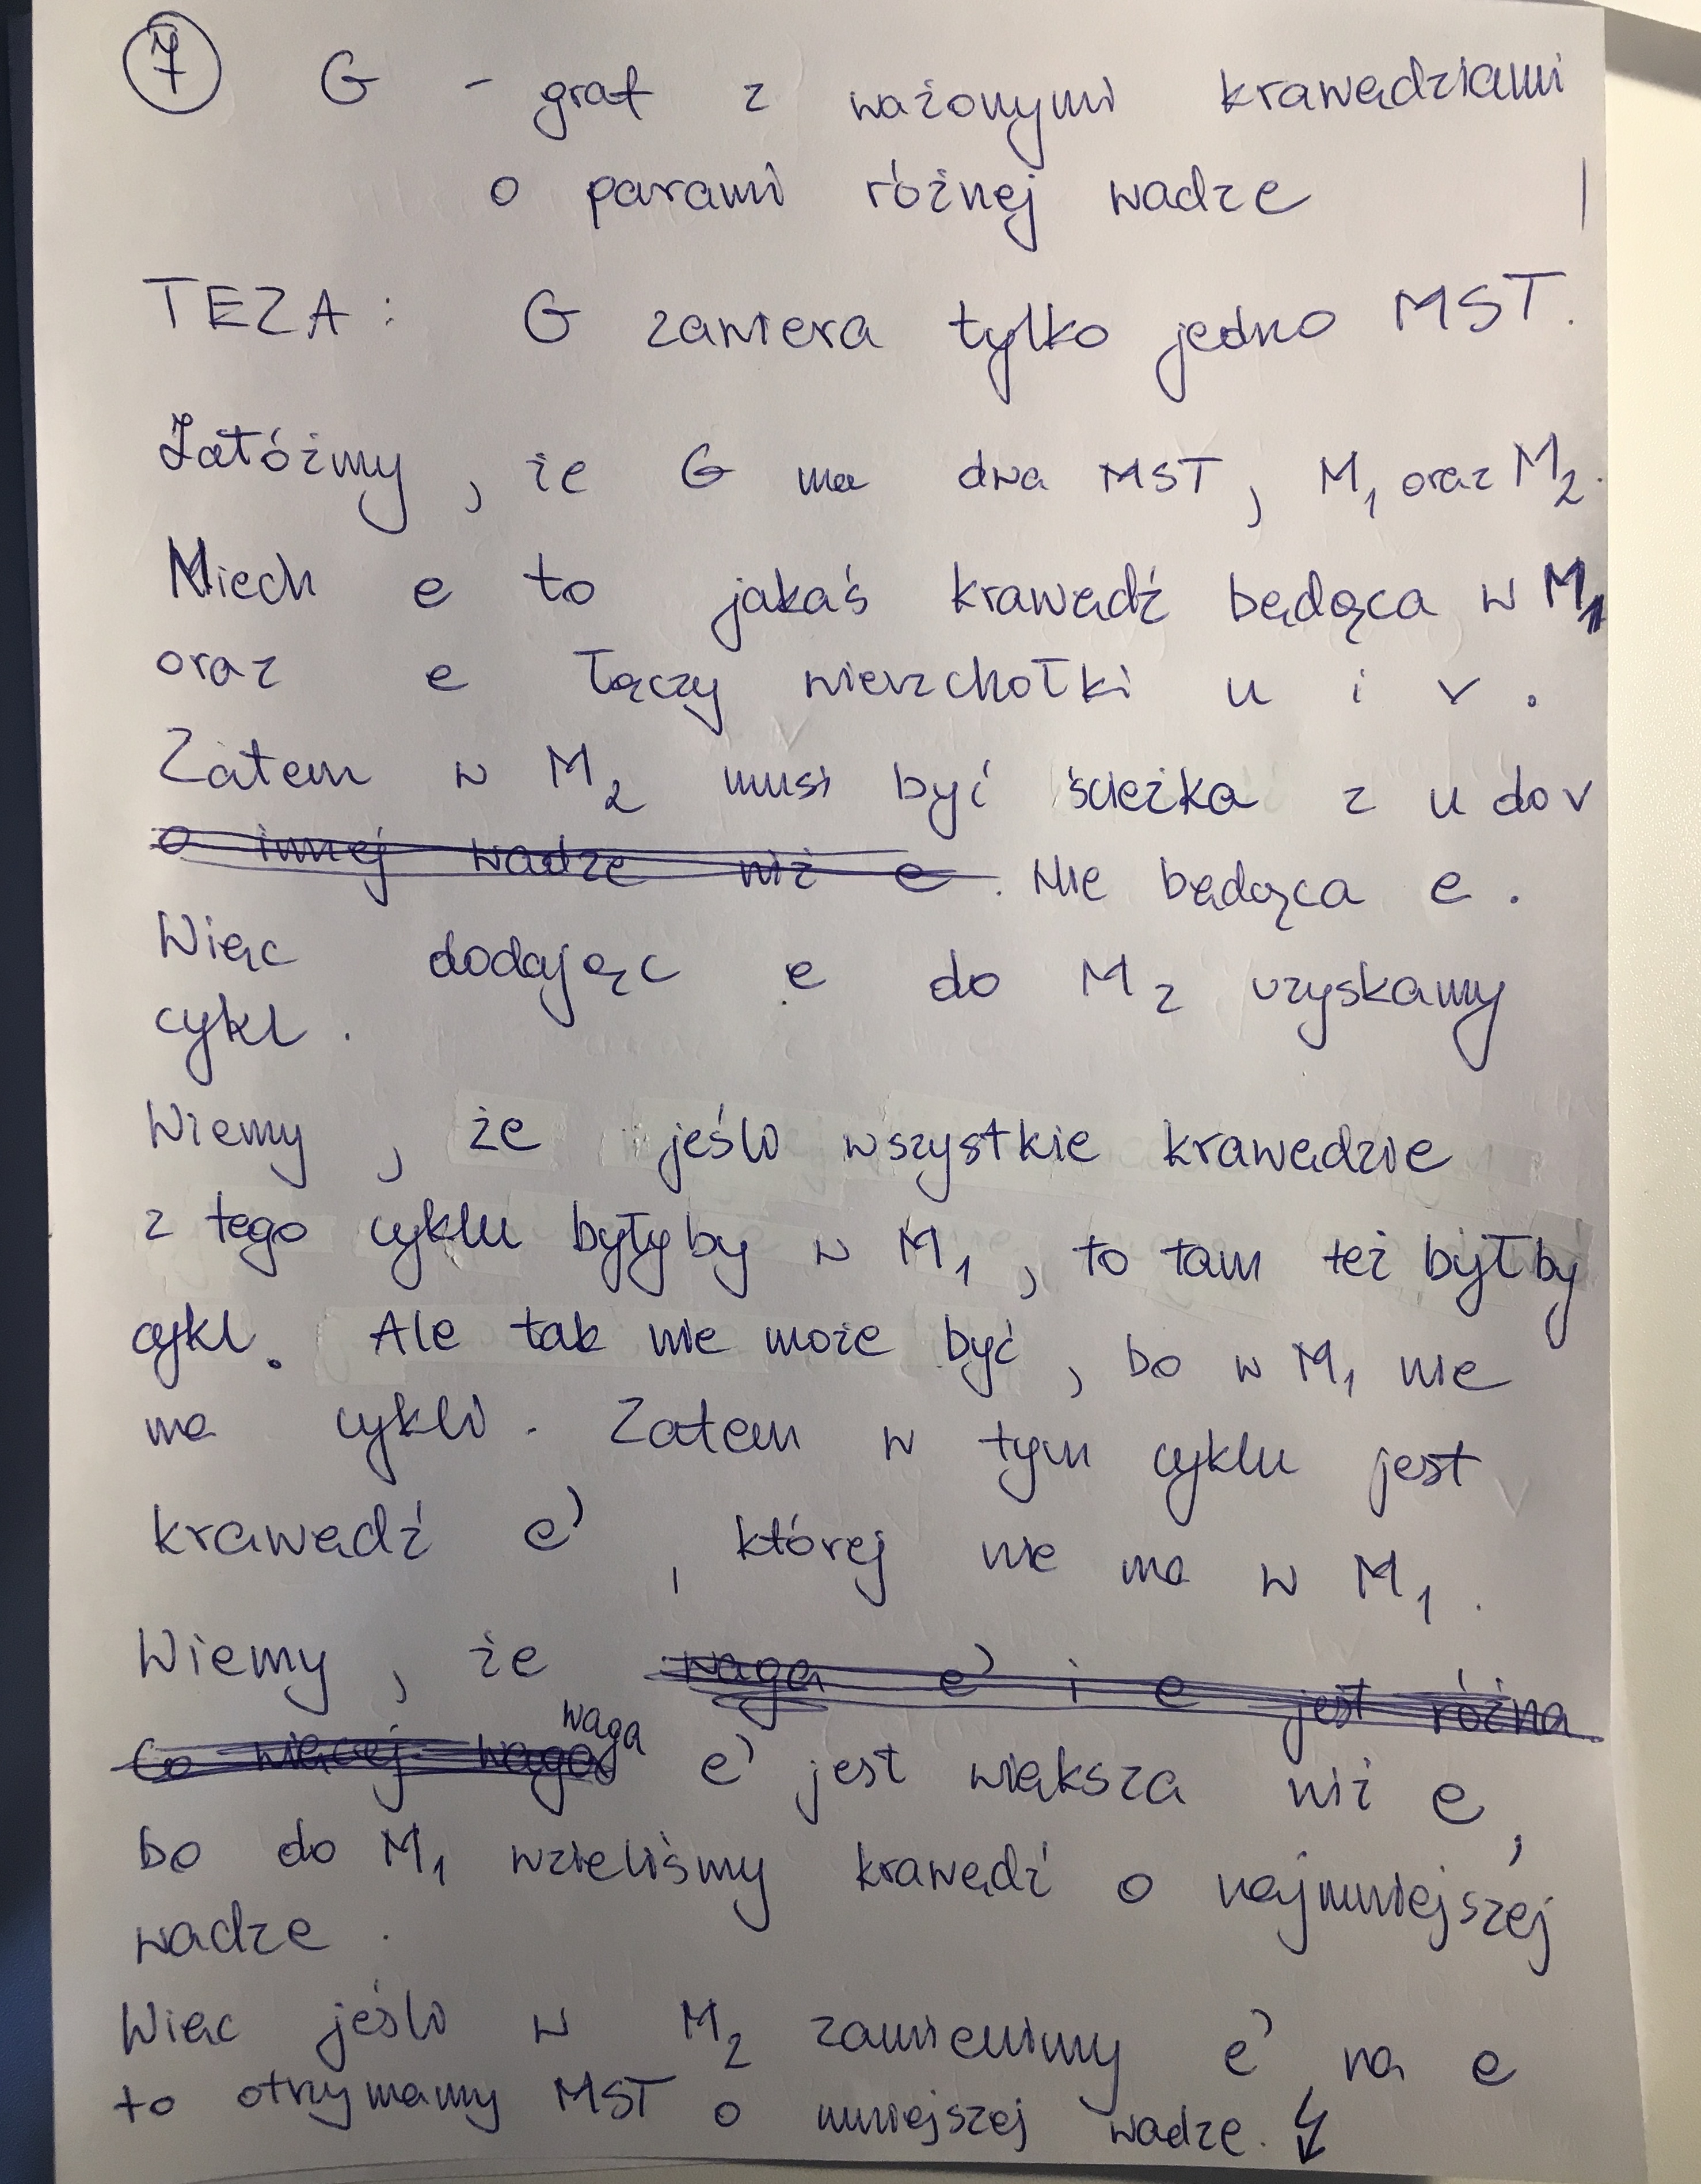 7 G - graf z ważonymi krawędziami
o parami różnej wadze
TEZA: G zawiera tylko jedno MST.
Załóżmy, że G ma dwa MST, M1 oraz M2.
Niech e to jakaś krawędź będąca w M1
oraz e łączy wierzchołki u i v.
Zatem w M2 musi być ścieżka z u do v
o innej wadze niż e. Nie będąca e.
Więc dodając e do M2 uzyskamy
cykl.
Wiemy, że jeśli wszystkie krawędzie
z tego cyklu byłyby w M1, to tam też byłby
cykl. Ale tak nie może być, bo w M1 nie
ma cykli. Zatem w tym cyklu jest
krawędź e', której nie ma w M1.
Wiemy, że waga e' i e jest różna
Co więcej waga waga e' jest większa niż e,
bo do M1 wzieliśmy krawędź o najmniejszej
wadze.
Więc jeśli w M2 zamienimy e' na e
to otrzymamy MST o mniejszej wadze. ↯